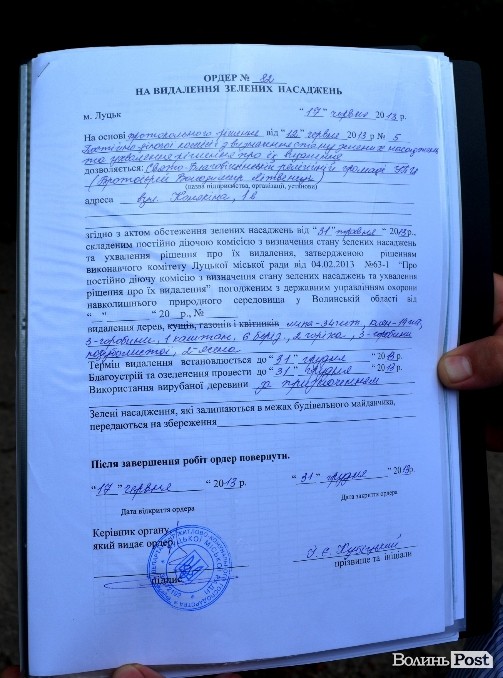 ОРДЕР № 22
НА ВИДАЛЕННЯ ЗЕЛЕНИХ НАСАДЖЕНЬ
м. Луцьк “17” червня 2013р.
На основі протокольного рішення від “12” червня 2013 р № 5
Постійно діючої комісії з визначення стану зелених насаджень
та ухвалення рішення про їх видалення
дозволяється: Свято-Благовіщенській релігійній громаді
(Протоієрей Володимир
(назва підприємства, організації, установи)
адреса вул. 1в
згідно з актом обстеження зелених насаджень від “31” травня 2013р.,
складеним постійно діючою комісією з визначення стану зелених насаджень
та ухвалення рішення про їх видалення, затвердженою рішенням
виконавчого комітету Луцької міської ради від 04.02.2013 №63-1 “Про
постійно діючу комісію з визначення стану зелених насаджень та ухвалення
рішення про їх видалення” погодженим з державним управлінням охорони
навколишнього природного середовища у Волинській області від
“ ” 20 р., №
видалення дерев, кущів, газонів і квітників липа-34шт,
3-горобини, 1 каштан, 6 беріз, 2 горіха, 3-горобини
2-ясена
Термін видалення встановлюється до “31” грудня 2013р.
Благоустрій та озеленення провести до “31” грудня 2013р.
Використання вирубаної деревини за призначенням
Зелені насадження, які залишаються в межах будівельного майданчика,
передаються на збереження
Після завершення робіт ордер повернути.
“17” червня 2013р. “31” грудня 2013р.
Дата відкриття ордера Дата закриття ордера
Керівник органу,
який видає ордер
підпис прізвище та ініціали
Волинь Post